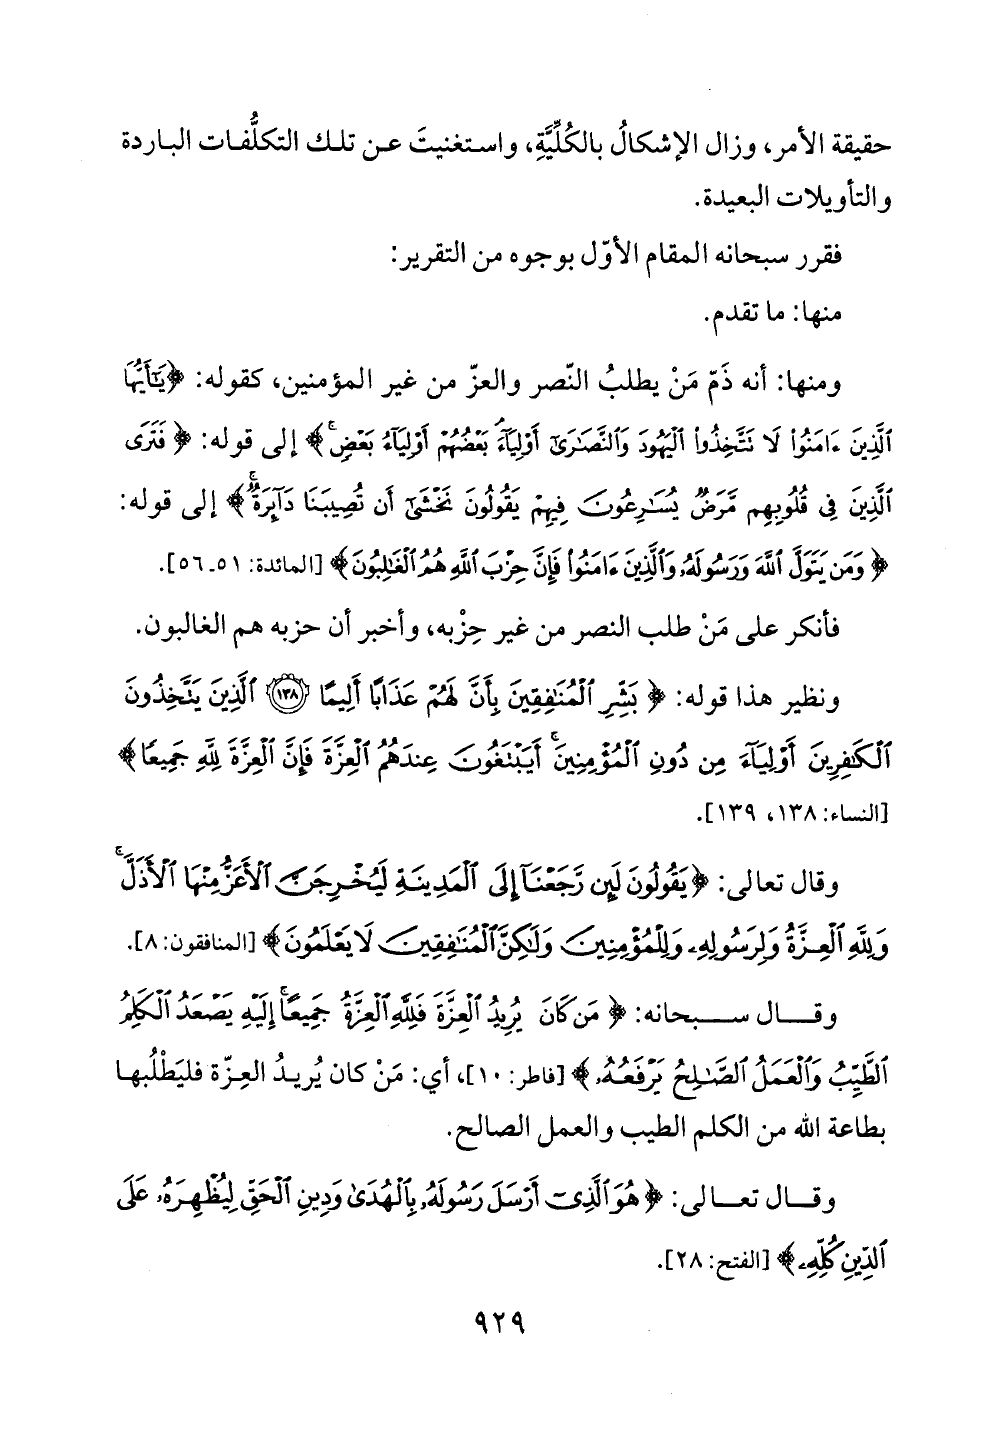 حقيقة الأمر، وزال الإشكالُ بالكُلِّيَّةِ، واستغنيتَ عن تلك التكلُّفات الباردة
والتأويلات البعيدة.
فقرر سبحانه المقام الأوّل بوجوه من التقرير:
منها: ما تقدم.
ومنها: أنه ذَمّ مَنْ يطلبُ النّصر والعزّ من غير المؤمنين، كقوله: ﴿يَٰٓأَيُّهَا
ٱلَّذِينَ ءَامَنُوا۟ لَا تَتَّخِذُوا۟ ٱلْيَهُودَ وَٱلنَّصَٰرَىٰٓ أَوْلِيَآءَۘ بَعْضُهُمْ أَوْلِيَآءُ بَعْضٍۚ﴾ إلى قوله: ﴿فَتَرَى
ٱلَّذِينَ فِى قُلُوبِهِم مَّرَضٌ يُسَٰرِعُونَ فِيهِمْ يَقُولُونَ نَخْشَىٰٓ أَن تُصِيبَنَا دَآئِرَةٌۚ﴾ إلى قوله:
﴿وَمَن يَتَوَلَّ ٱللَّهَ وَرَسُولَهُۥ وَٱلَّذِينَ ءَامَنُوا۟ فَإِنَّ حِزْبَ ٱللَّهِ هُمُ ٱلْغَٰلِبُونَ﴾ [المائدة: ٥١ـ٥٦].
فأنكر على مَنْ طلب النصر من غير حِزْبه، وأخبر أن حزبه هم الغالبون.
ونظير هذا قوله: ﴿بَشِّرِ ٱلْمُنَٰفِقِينَ بِأَنَّ لَهُمْ عَذَابًا أَلِيمًا ١٣٨ ٱلَّذِينَ يَتَّخِذُونَ
ٱلْكَٰفِرِينَ أَوْلِيَآءَ مِن دُونِ ٱلْمُؤْمِنِينَۚ أَيَبْتَغُونَ عِندَهُمُ ٱلْعِزَّةَ فَإِنَّ ٱلْعِزَّةَ لِلَّهِ جَمِيعًا﴾
[النساء: ١٣٨، ١٣٩].
وقال تعالى: ﴿يَقُولُونَ لَئِن رَّجَعْنَآ إِلَى ٱلْمَدِينَةِ لَيُخْرِجَنَّ ٱلْأَعَزُّ مِنْهَا ٱلْأَذَلَّۚ
وَلِلَّهِ ٱلْعِزَّةُ وَلِرَسُولِهِۦ وَلِلْمُؤْمِنِينَ وَلَٰكِنَّ ٱلْمُنَٰفِقِينَ لَا يَعْلَمُونَ﴾ [المنافقون: ٨].
وقال سبحانه: ﴿مَن كَانَ يُرِيدُ ٱلْعِزَّةَ فَلِلَّهِ ٱلْعِزَّةُ جَمِيعًاۚ إِلَيْهِ يَصْعَدُ ٱلْكَلِمُ
ٱلطَّيِّبُ وَٱلْعَمَلُ ٱلصَّٰلِحُ يَرْفَعُهُۥ﴾ [فاطر: ١٠]، أي: مَنْ كان يُريدُ العِزّة فليَطْلُبها
بطاعة الله من الكلم الطيب والعمل الصالح.
وقال تعالى: ﴿هُوَ ٱلَّذِىٓ أَرْسَلَ رَسُولَهُۥ بِٱلْهُدَىٰ وَدِينِ ٱلْحَقِّ لِيُظْهِرَهُۥ عَلَى
ٱلدِّينِ كُلِّهِۦ﴾ [الفتح: ٢٨].
٩٢٩